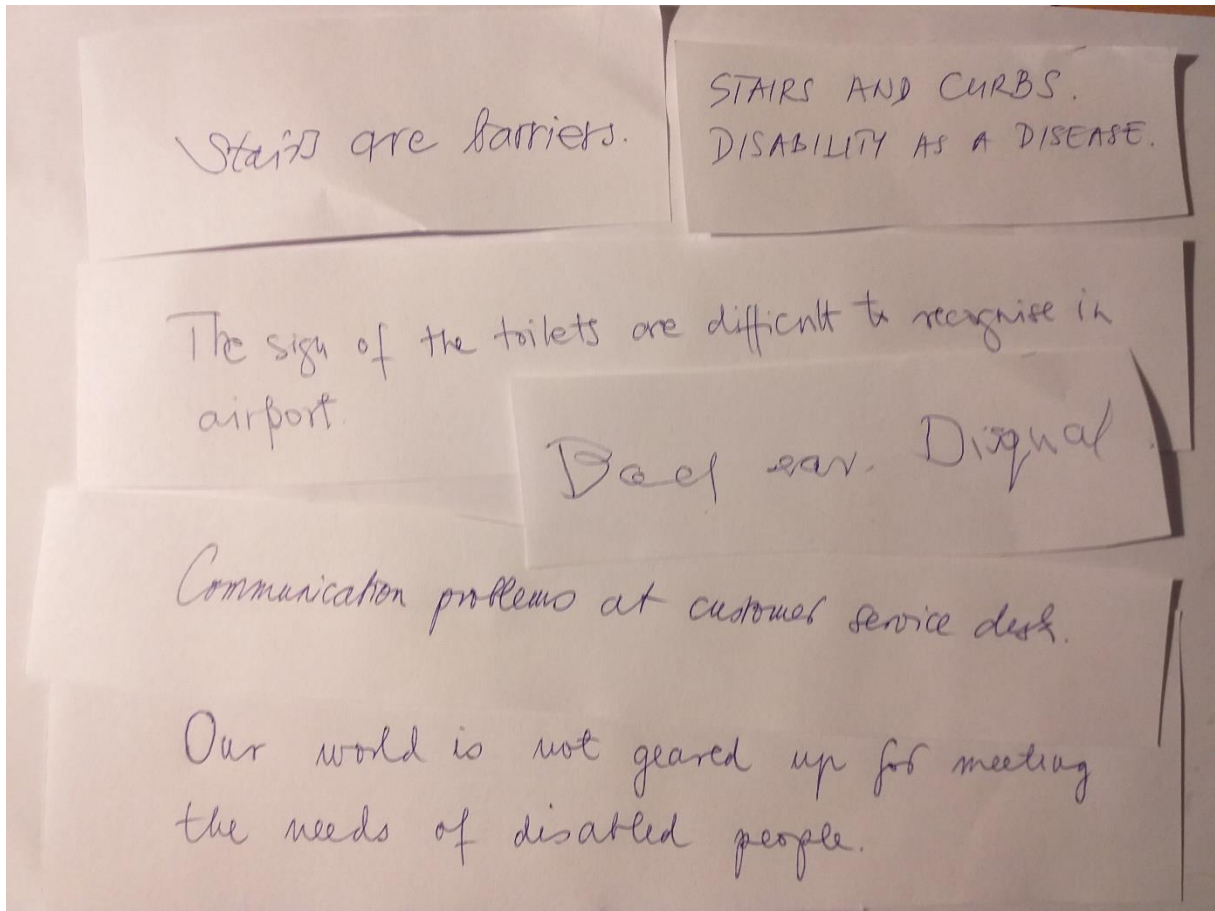 Stairs are barriers.
STAIRS AND CURBS.
DISABILITY AS A DISEASE.
The sign of the toilets are difficult to recognise in
airport.
ear. Disqual
Communication problems at customer service desk.
Our world is not geared up for meeting
the needs of disabled people.